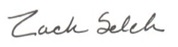 Zack Selch